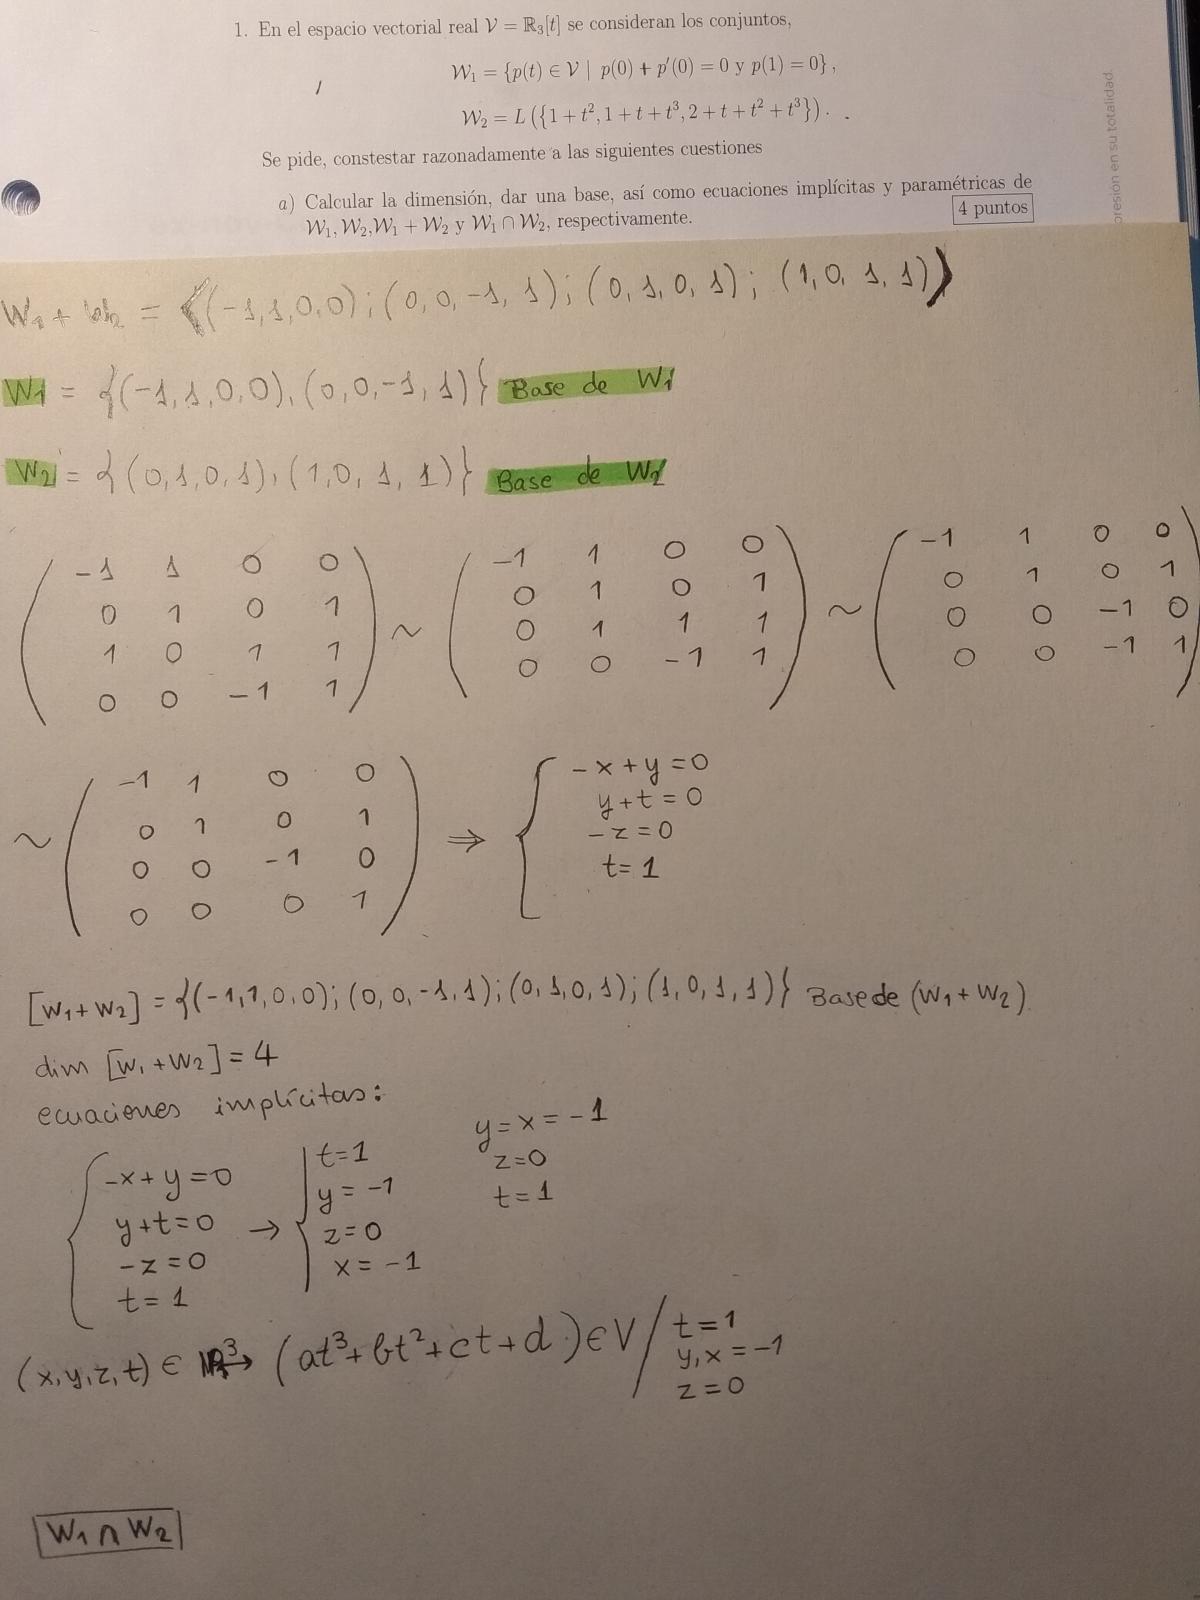 1. En el espacio vectorial real V = ℝ₃[t] se consideran los conjuntos,
W₁ = {p(t) ∈ V | p(0) + p′(0) = 0 y p(1) = 0},
W₂ = L ({1 + t², 1 + t + t³, 2 + t + t² + t³}).
Se pide, constestar razonadamente a las siguientes cuestiones
a) Calcular la dimensión, dar una base, así como ecuaciones implícitas y paramétricas de
W₁, W₂,W₁ + W₂ y W₁ ∩ W₂, respectivamente.
4 puntos
presión en su totalidad.
W₁ + W₂ = ⟨(-1,1,0,0); (0,0,-1,1); (0,1,0,1); (1,0,1,1)⟩
W₁ = {(-1,1,0,0), (0,0,-1,1)} Base de W₁
W₂ = {(0,1,0,1), (1,0,1,1)} Base de W₂
( -1 1 0 0 ) ~ ( -1 1 0 0 ) ~ ( -1 1 0 0 )
( 0 1 0 1 ) ( 0 1 0 1 ) ( 0 1 0 1 )
( 1 0 1 1 ) ( 0 1 1 1 ) ( 0 0 -1 0 )
( 0 0 -1 1 ) ( 0 0 -1 1 ) ( 0 0 -1 1 )
~ ( -1 1 0 0 ) ⇒ { -x + y = 0
( 0 1 0 1 ) y + t = 0
( 0 0 -1 0 ) -z = 0
( 0 0 0 1 ) t = 1
[W₁ + W₂] = {(-1,1,0,0); (0,0,-1,1); (0,1,0,1); (1,0,1,1)} Base de (W₁ + W₂)
dim [W₁ + W₂] = 4
ecuaciones implícitas:
{ -x + y = 0 → { t = 1 y = x = -1
y + t = 0 y = -1 z = 0
-z = 0 z = 0 t = 1
t = 1 x = -1
(x, y, z, t) ∈ → (at³ + bt² + ct + d) ∈ V / t = 1
y, x = -1
z = 0
W₁ ∩ W₂